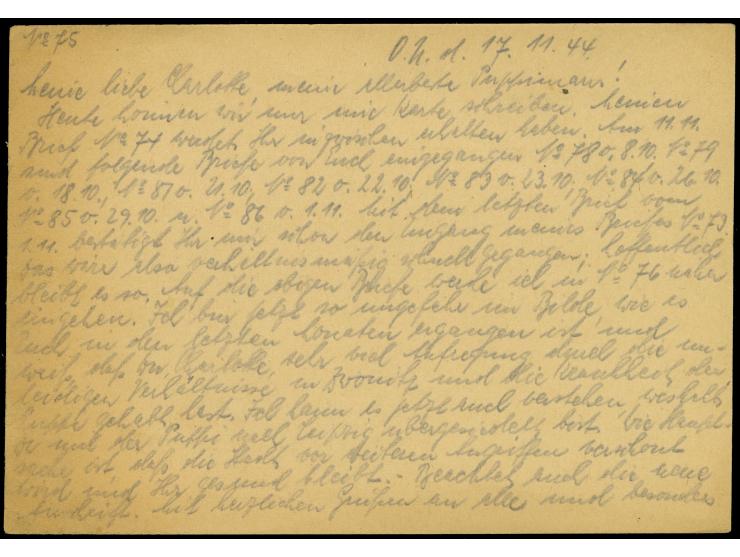 No 75
O.U. d. 17. 11. 44.
Meine liebe Charlotte, meine allerbeste Puppimaus!
Heute können wir nur eine Karte schreiben. Meinen
Brief No 74 werdet Ihr inzwischen erhalten haben. Am 11.11.
sind folgende Briefe von Euch eingegangen No 78 v. 8.10. No 79
v. 18.10., No 81 v. 21.10, No 82 v. 22.10. No 83 v. 23.10. No 84 v. 26.10.
No 85 v. 29.10. u. No 86 v. 1.11. Mit dem letzten Brief vom
1.11. bestätigt Ihr mir schon den Eingang meines Briefes No 73.
Das wäre also verhältnismäßig schnell gegangen. Hoffentlich
bleibt es so. Auf die obigen Briefe werde ich in No 76 näher
eingehen. Ich bin jetzt so ungefähr im Bilde, wie es
Euch in den letzten Monaten ergangen ist und
weiß, daß Du, Charlotte, sehr viel Aufregung durch die un-
leidigen Verhältnisse in und die Krankheit der
Puppi gehabt hast. Ich kann es jetzt auch verstehen, weshalb
Du mit der Puppi nach Leipzig übergesiedelt bist. Die Haupt-
sache ist daß die Stadt vor weiteren Angriffen verschont
wird und Ihr gesund bleibt. - Beachtet auch die neue
Anschrift. Mit herzlichen Grüßen an alle und besonders